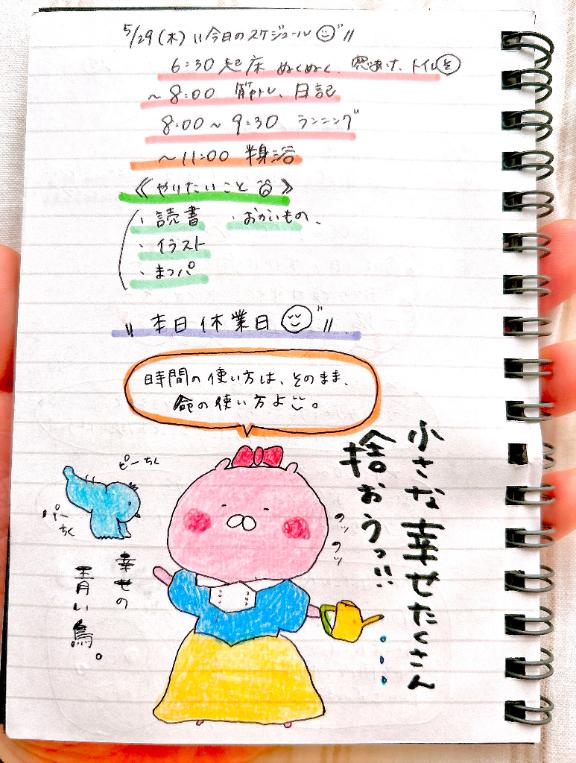 5/29(木) 〃今日のスケジュール〃
6:30 起床 ぬくぬく、窓あけ、トイレ
~8:00 筋トレ、日記
8:00~9:30 ランニング
~11:00 半身浴
《やりたいこと》
・読書 ・おかいもの、
・イラスト
・まつパ
〃本日休業日〃
時間の使い方は、そのまま、
命の使い方よ。
小さな幸せたくさん
捨おうっ!!
ピーちく
パーちく
幸せの
青い鳥。